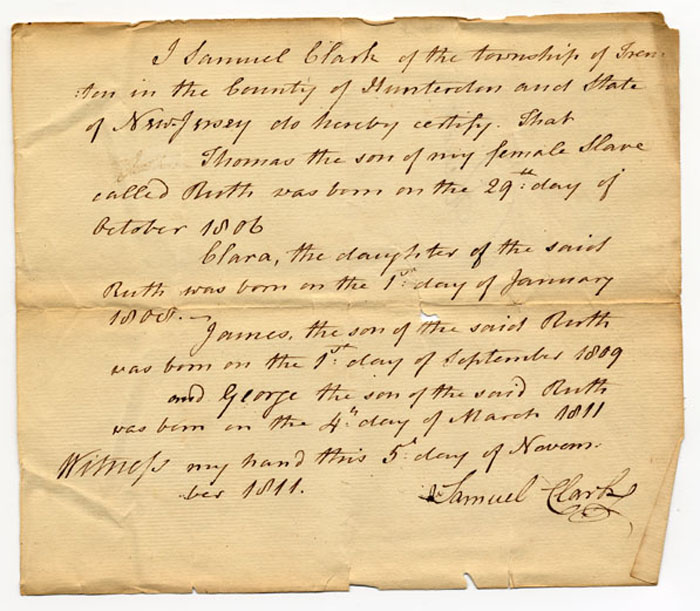 I Samuel Clark of the township of Tren-
ton in the County of Hunterdon and State
of New-Jersey do hereby certify. That
Thomas the son of my female Slave
called Ruth was born on the 29th day of
October 1806
Clara, the daughter of the said
Ruth was born on the 1st day of January
1808.—
James, the son of the said Ruth
was born on the 1st day of September 1809
and George the son of the said Ruth
was born on the 4th day of March 1811
Witness my hand this 5th day of Novem-
ber 1811.
Samuel Clark